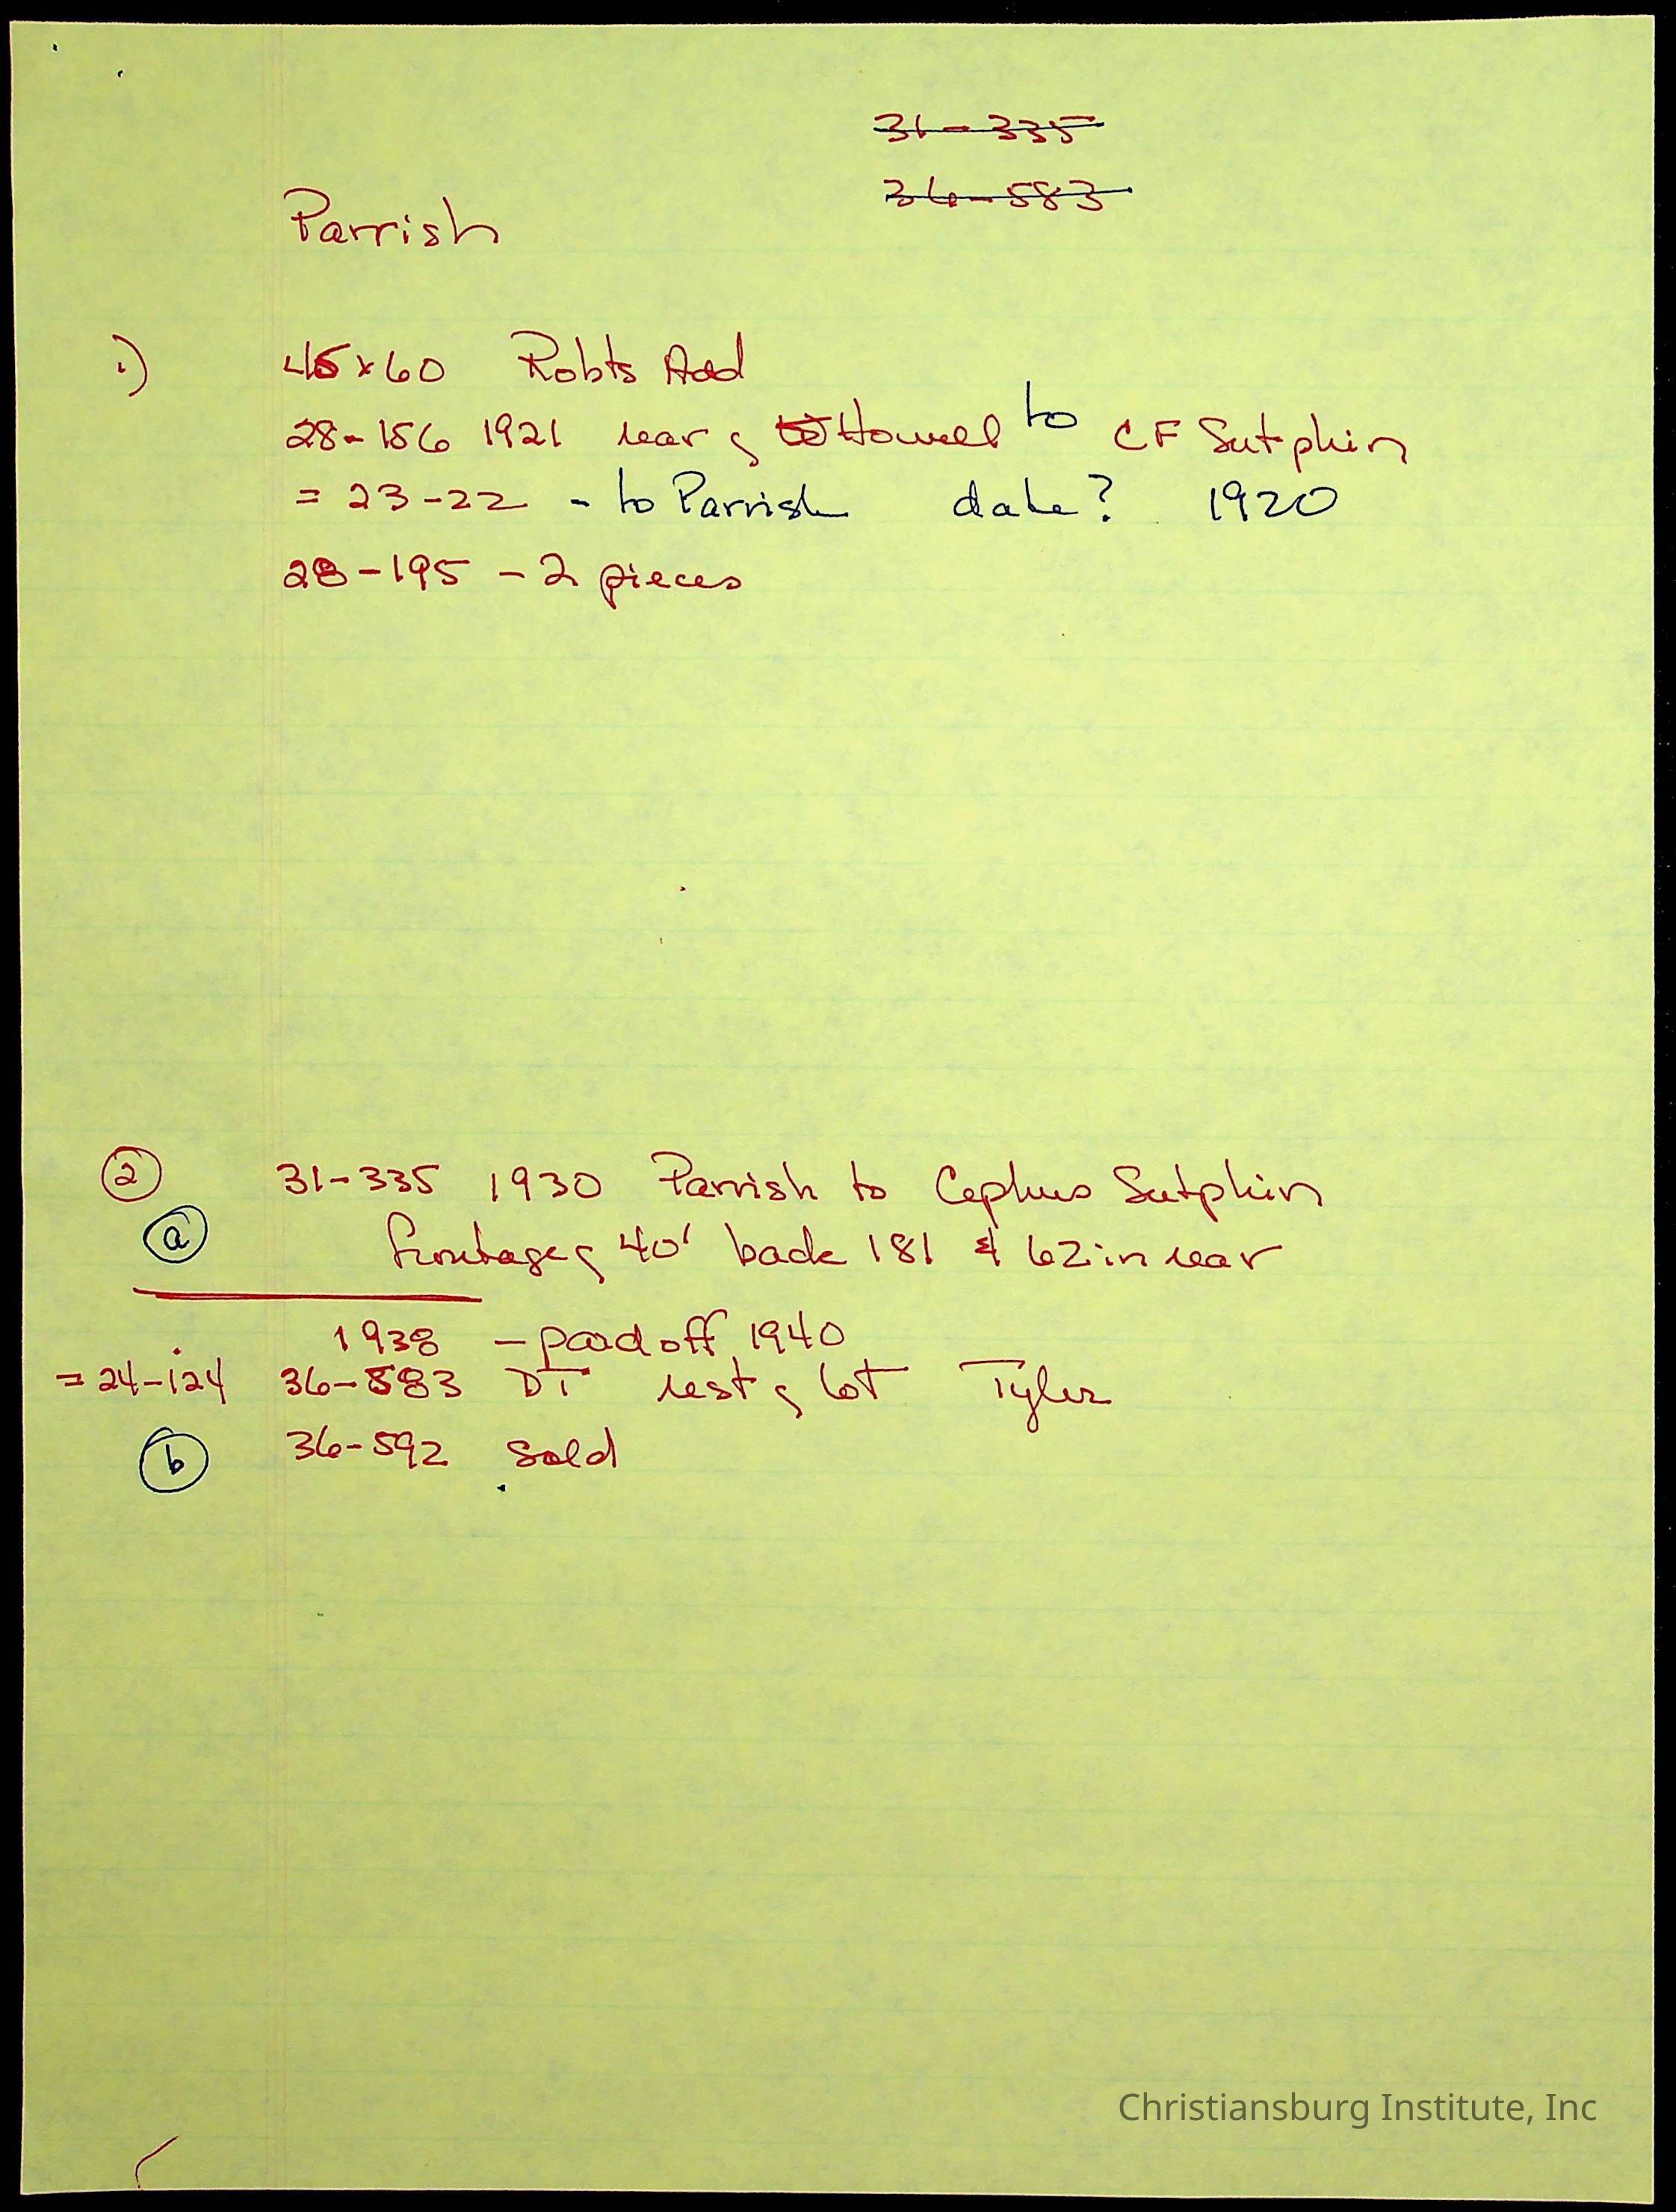 31-335
36-583
Parrish
1.) 45x60 Robts Add
28-156 1921 rear of Howell to CF Sutphin
= 23-22 - to Parrish date? 1920
28-195 - 2 pieces
2 31-335 1930 Parrish to Cephus Sutphin
a frontage of 40' back 181 & 62 in rear
1938 - paid off 1940
= 24-124 36-583 DT rest of lot Tyler
b 36-592 Sold
Christiansburg Institute, Inc